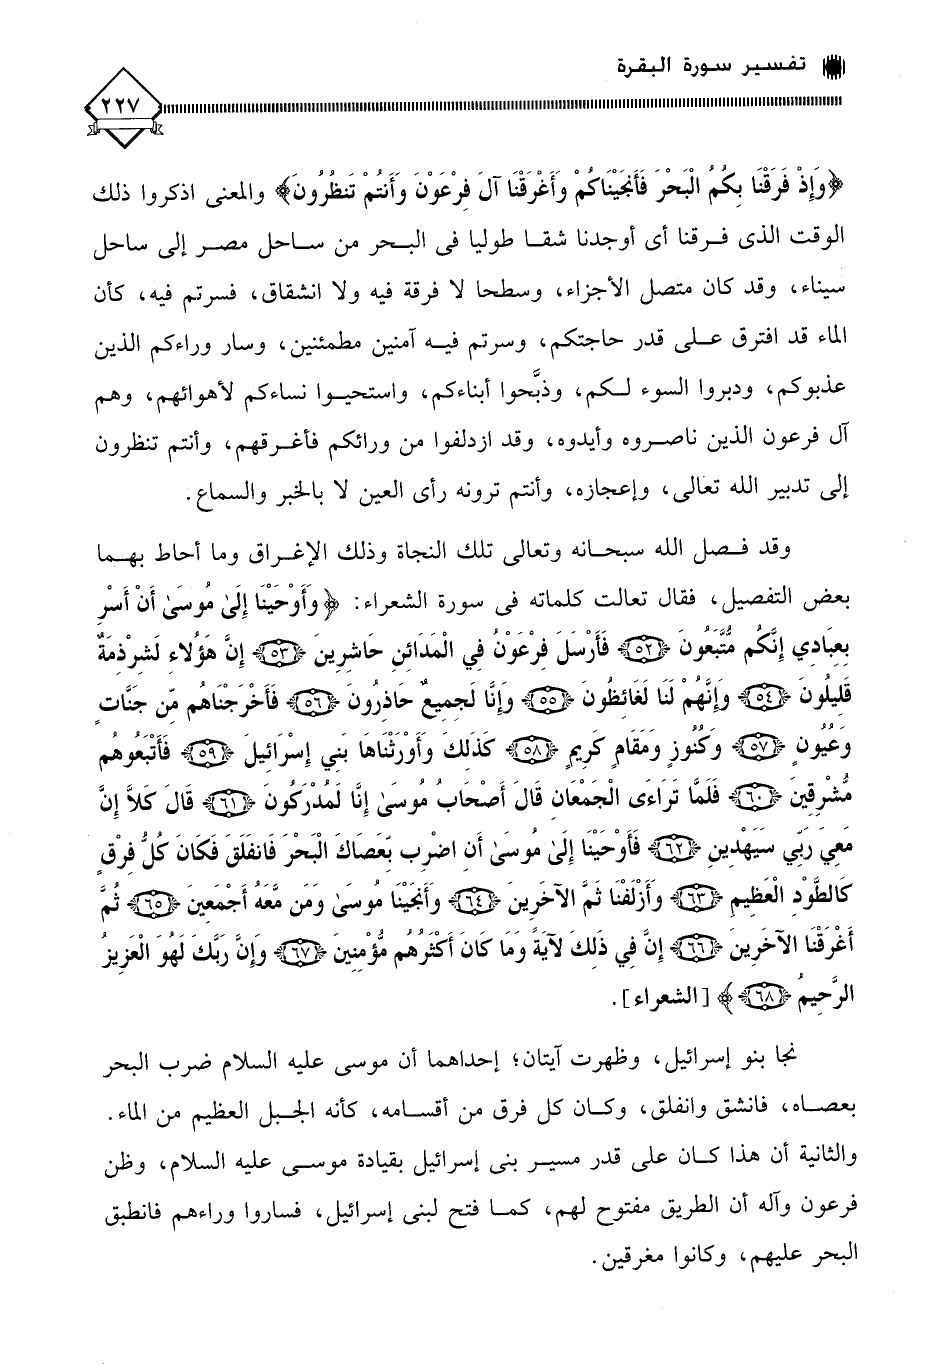 تفسير سورة البقرة
٢٢٧
﴿وَإِذْ فَرَقْنَا بِكُمُ الْبَحْرَ فَأَنجَيْنَاكُمْ وَأَغْرَقْنَا آلَ فِرْعَوْنَ وَأَنتُمْ تَنظُرُونَ﴾ والمعنى اذكروا ذلك
الوقت الذى فرقنا أى أوجدنا شقا طوليا فى البحر من ساحل مصر إلى ساحل
سيناء، وقد كان متصل الأجزاء، وسطحا لا فرقة فيه ولا انشقاق، فسرتم فيه، كأن
الماء قد افترق على قدر حاجتكم، وسرتم فيه آمنين مطمئنين، وسار وراءكم الذين
عذبوكم، ودبروا السوء لكم، وذبَّحوا أبناءكم، واستحيوا نساءكم لأهوائهم، وهم
آل فرعون الذين ناصروه وأيدوه، وقد ازدلفوا من ورائكم فأغرقهم، وأنتم تنظرون
إلى تدبير الله تعالى، وإعجازه، وأنتم ترونه رأى العين لا بالخبر والسماع.
وقد فصل الله سبحانه وتعالى تلك النجاة وذلك الإغراق وما أحاط بهما
بعض التفصيل، فقال تعالت كلماته فى سورة الشعراء: ﴿وَأَوْحَيْنَا إِلَىٰ مُوسَىٰ أَنْ أَسْرِ
بِعِبَادِي إِنَّكُم مُّتَّبَعُونَ ﴿٥٢﴾ فَأَرْسَلَ فِرْعَوْنُ فِي الْمَدَائِنِ حَاشِرِينَ ﴿٥٣﴾ إِنَّ هَؤُلاءِ لَشِرْذِمَةٌ
قَلِيلُونَ ﴿٥٤﴾ وَإِنَّهُمْ لَنَا لَغَائِظُونَ ﴿٥٥﴾ وَإِنَّا لَجَمِيعٌ حَاذِرُونَ ﴿٥٦﴾ فَأَخْرَجْنَاهُم مِّن جَنَّاتٍ
وَعُيُونٍ ﴿٥٧﴾ وَكُنُوزٍ وَمَقَامٍ كَرِيمٍ ﴿٥٨﴾ كَذَلِكَ وَأَوْرَثْنَاهَا بَنِي إِسْرَائِيلَ ﴿٥٩﴾ فَأَتْبَعُوهُم
مُّشْرِقِينَ ﴿٦٠﴾ فَلَمَّا تَرَاءَى الْجَمْعَانِ قَالَ أَصْحَابُ مُوسَىٰ إِنَّا لَمُدْرَكُونَ ﴿٦١﴾ قَالَ كَلاَّ إِنَّ
مَعِيَ رَبِّي سَيَهْدِينِ ﴿٦٢﴾ فَأَوْحَيْنَا إِلَىٰ مُوسَىٰ أَنِ اضْرِب بِّعَصَاكَ الْبَحْرَ فَانفَلَقَ فَكَانَ كُلُّ فِرْقٍ
كَالطَّوْدِ الْعَظِيمِ ﴿٦٣﴾ وَأَزْلَفْنَا ثَمَّ الآخَرِينَ ﴿٦٤﴾ وَأَنجَيْنَا مُوسَىٰ وَمَن مَّعَهُ أَجْمَعِينَ ﴿٦٥﴾ ثُمَّ
أَغْرَقْنَا الآخَرِينَ ﴿٦٦﴾ إِنَّ فِي ذَلِكَ لآيَةً وَمَا كَانَ أَكْثَرُهُم مُّؤْمِنِينَ ﴿٦٧﴾ وَإِنَّ رَبَّكَ لَهُوَ الْعَزِيزُ
الرَّحِيمُ ﴿٦٨﴾﴾ [الشعراء].
نجا بنو إسرائيل، وظهرت آيتان؛ إحداهما أن موسى عليه السلام ضرب البحر
بعصاه، فانشق وانفلق، وكان كل فرق من أقسامه، كأنه الجبل العظيم من الماء.
والثانية أن هذا كان على قدر مسير بنى إسرائيل بقيادة موسى عليه السلام، وظن
فرعون وآله أن الطريق مفتوح لهم، كما فتح لبنى إسرائيل، فساروا وراءهم فانطبق
البحر عليهم، وكانوا مغرقين.